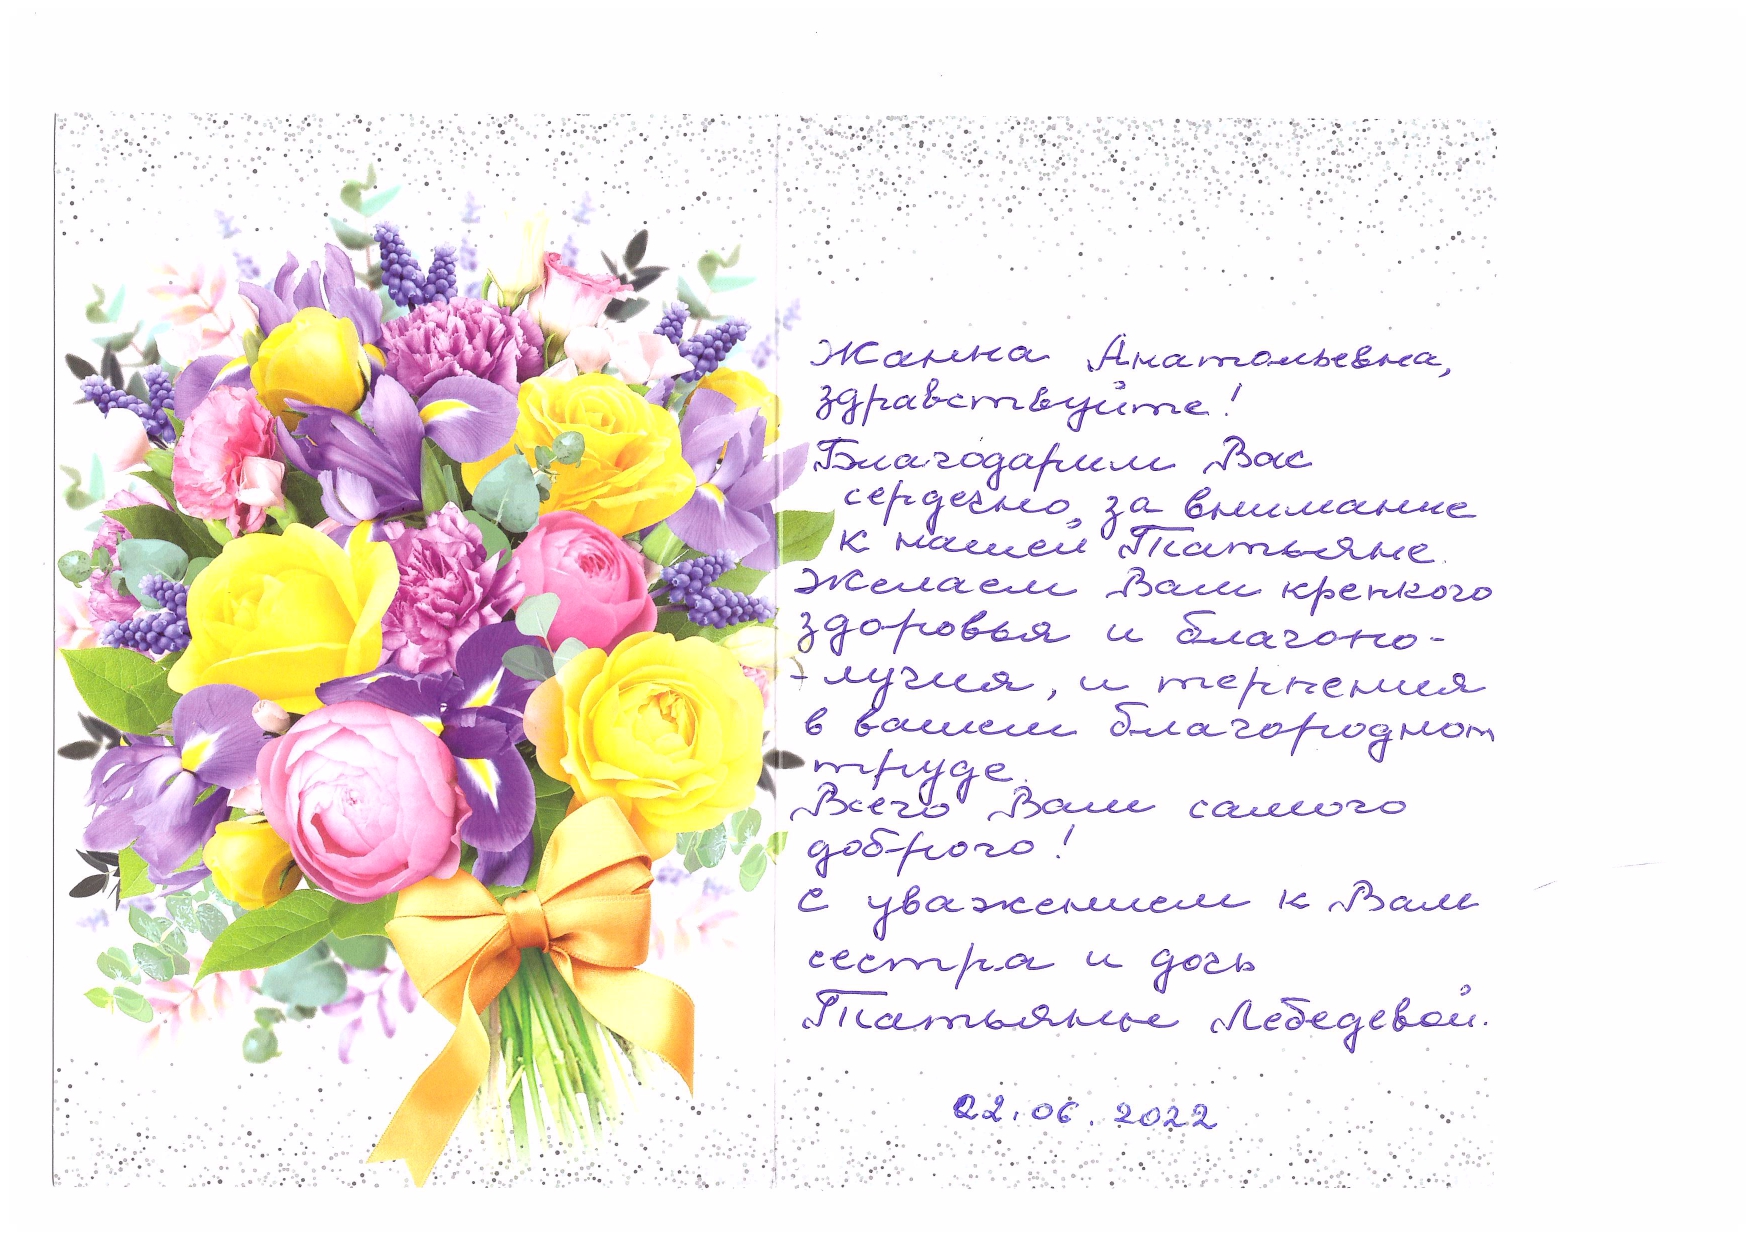 Жанна Анатольевна,
здравствуйте!
Благодарим Вас
сердечно, за внимание
к нашей Татьяне.
Желаем Вам крепкого
здоровья и благопо-
-лучия, и терпения
в вашем благородном
труде.
Всего Вам самого
доброго!
С уважением к Вам
сестра и дочь
Татьяны Лебедевой.
22.06.2022